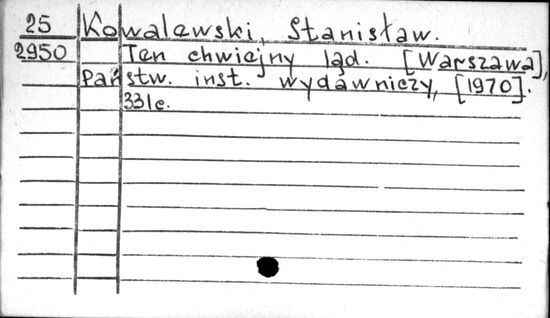 25 Kowalewski, Stanisław.
2950 Ten chwiejny ląd. [Warszawa],
Państw. inst. wydawniczy, [1970].
331c.